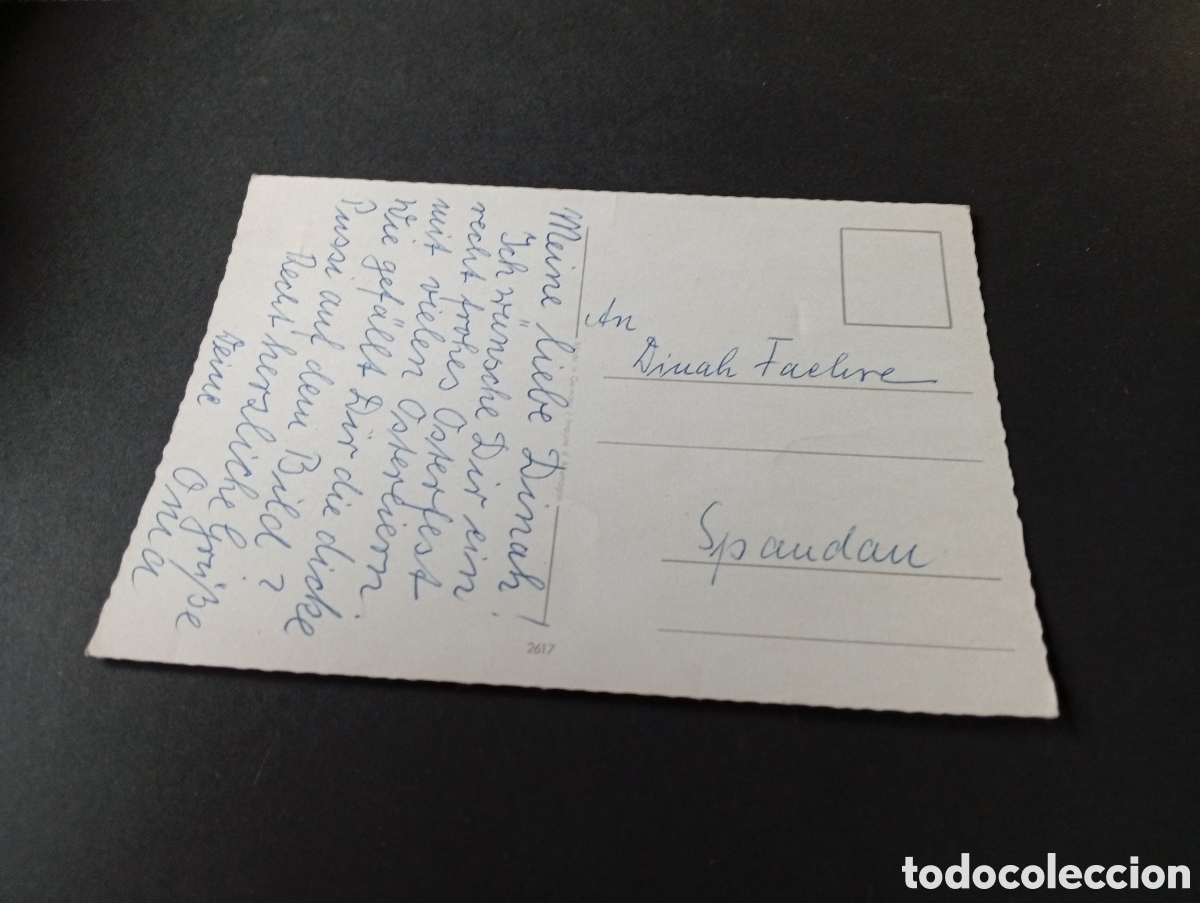 Meine liebe Dinah!
Ich wünsche Dir ein
recht frohes Osterfest
mit vielen Ostereiern.
Wie gefällt Dir die dicke
Pussi auf dem Bild?
Recht herzliche Grüße
Deine
Oma
An
Dinah Faehre
Spandau
2617
todocoleccion